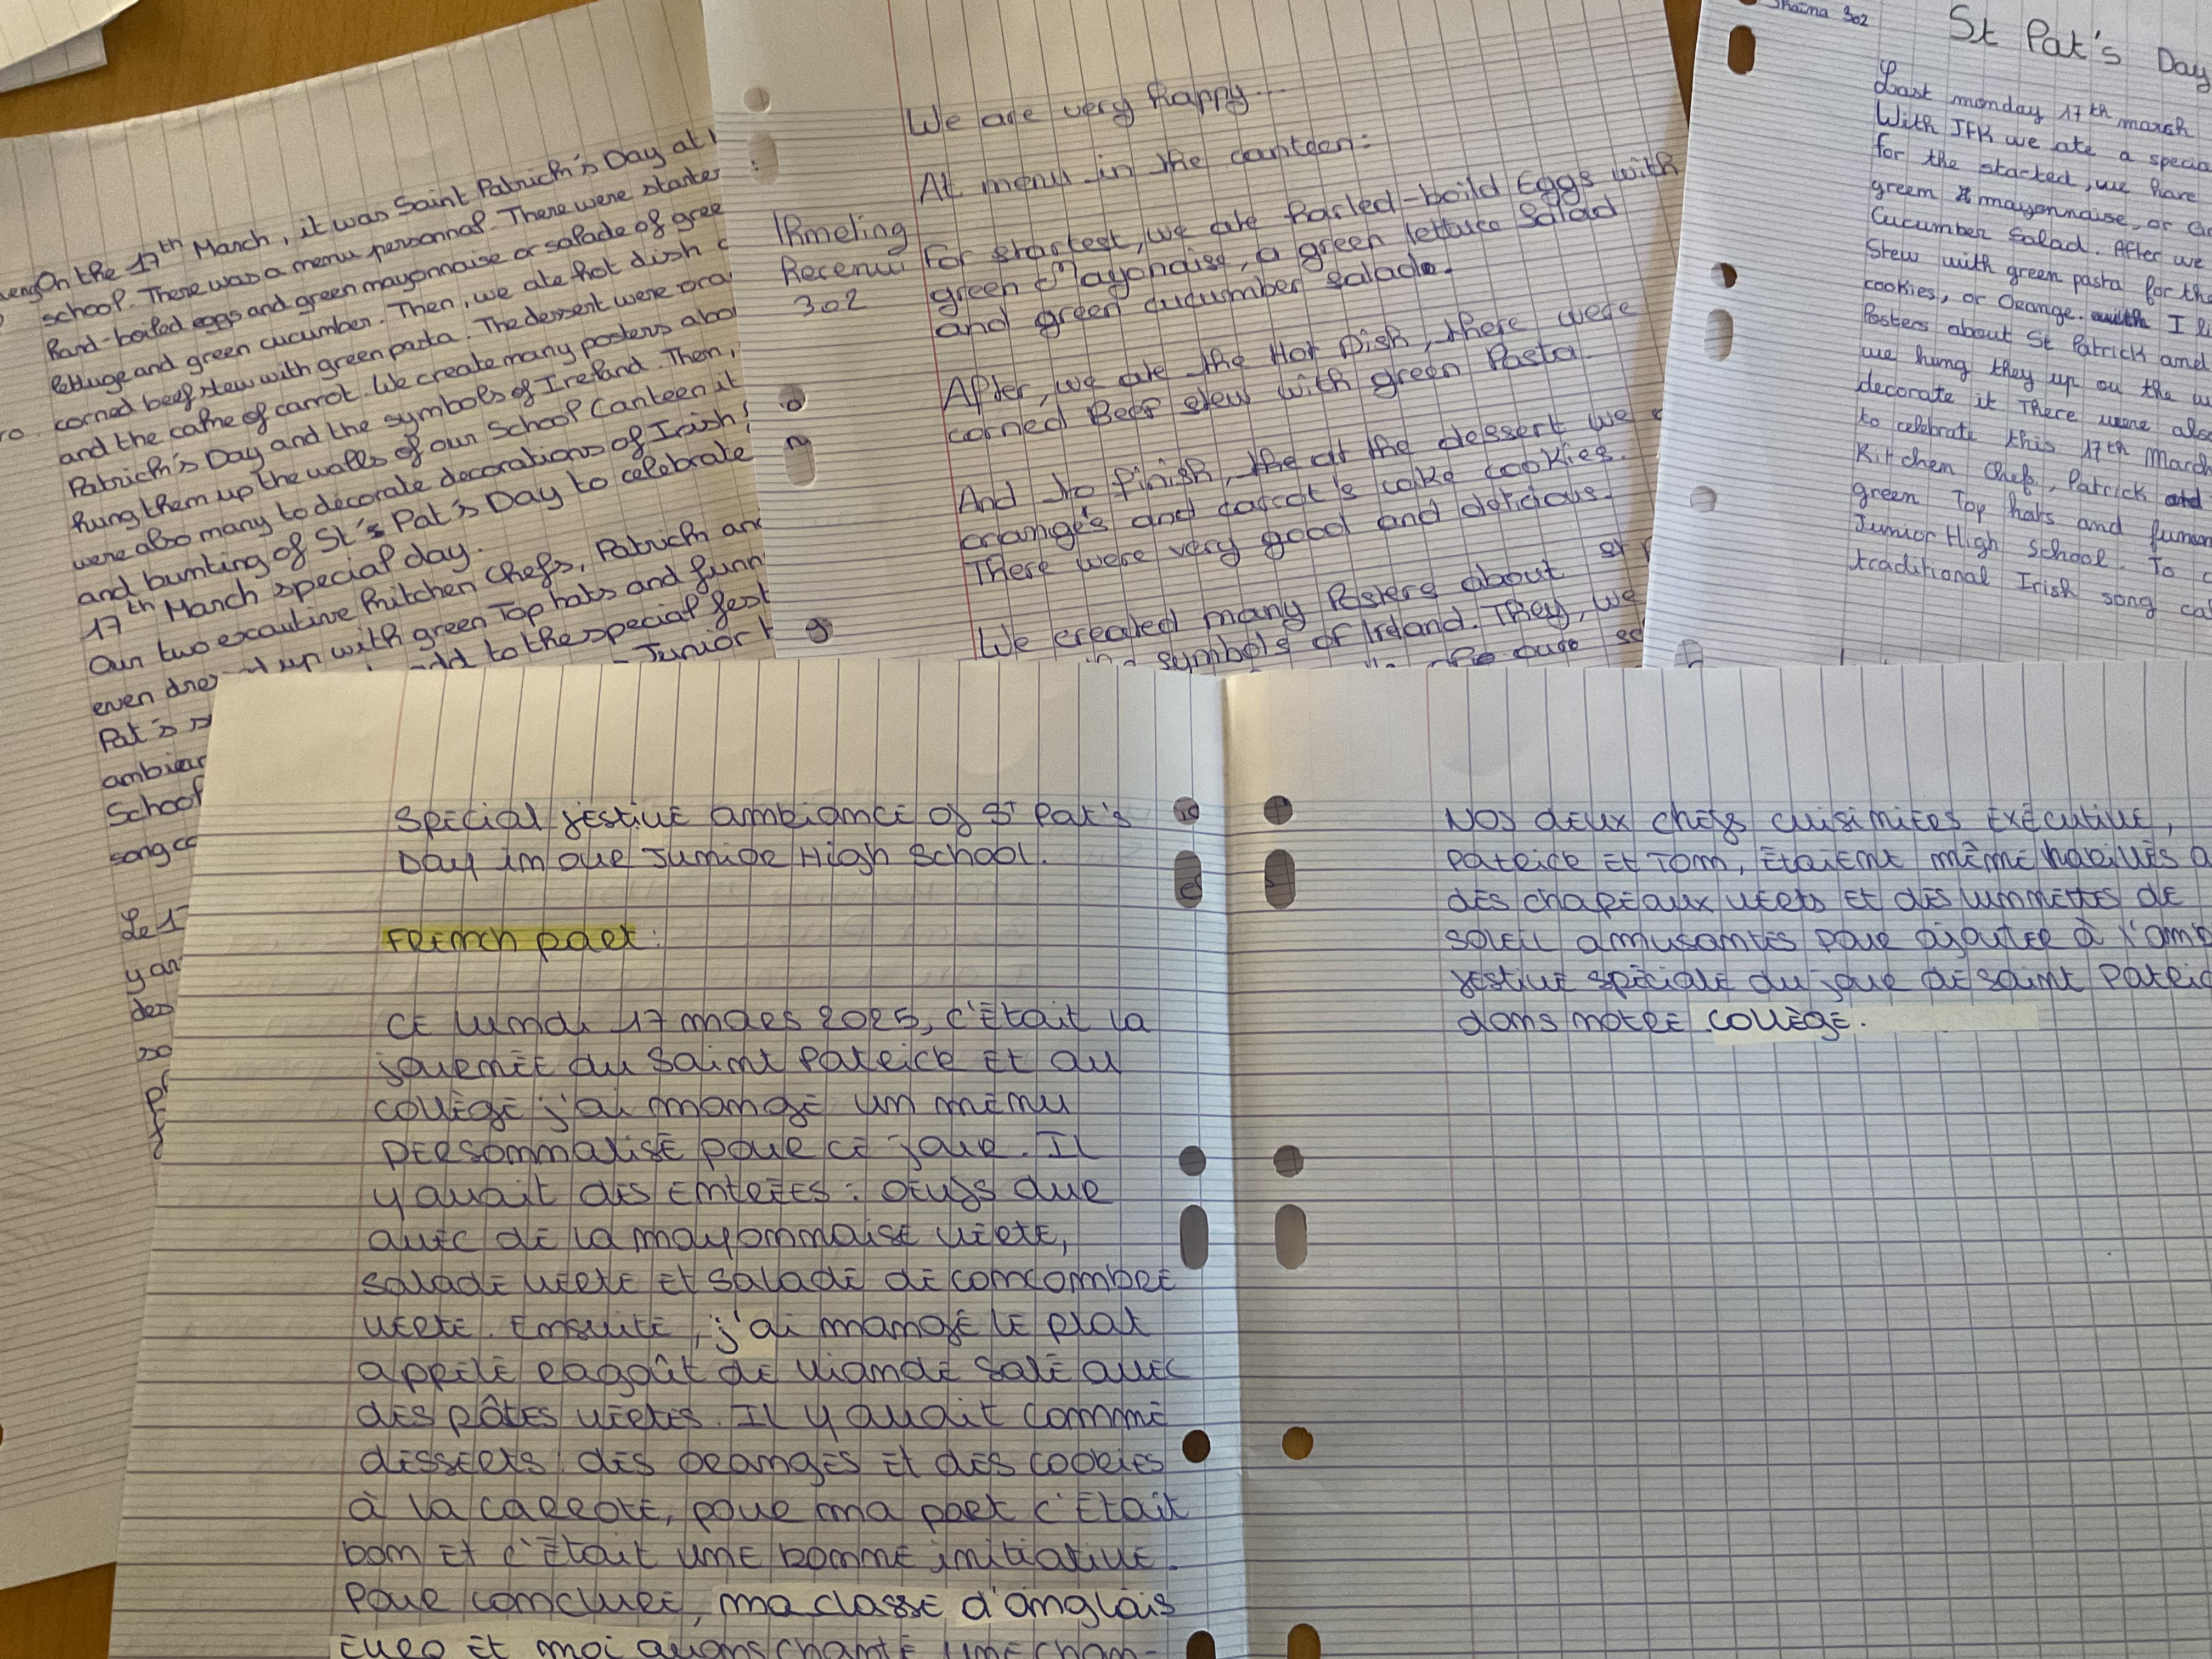 On the 17th March, it was Saint Patrick's Day at
school. There was a menu personnal. There were starter
hard-boiled eggs and green mayonnaise or salade of gree
lettuge and green cucumber. Then, we ate hot dish
corned beef stew with green pasta. The dessert were ora
and the cake of carrot. We create many posters abo
Patrick's Day and the symbols of Ireland. Then,
hung them up the walls of our School Canteen it
were also many to decorate decorations of Irish
and bunting of St's Pat's Day to celebrate
17th March special day.
Our two excautive kitchen chefs, Patrick an
even dres up with green Top hats and funn
Pat's add to the special fest
ambian Junior
School
song ca
Le 1
y a
des
We are very happy...
At menu in the canteen:
IRmeling
Recenui
302
For startest, we ate harled-boild Eggs with
green Mayonaise, a green lettuce Salad
and green cucumber salade.
After, we ate the Hot Dish, there were
corned Beef stew with green Pasta.
And to finish, the at the dessert we
orange's and carrot's cake cookies.
There were very good and delicious.
We created many Posters about st
symbols of Irland. They, we
Shaima 302
St Pat's Day
Last monday 17th march
With JFK we ate a specia
for the started, we have
green mayonnaise, or
Cucumber Salad. After we
Stew with green pasta for the
cookies, or Orange. I li
Posters about St Patrick and
we hung they up on the w
decorate it There were also
to celebrate this 17th March
Kitchen Chefs, Patrick and
green Top hats and funen
Junior High School. To
traditional Irish song cal
Special festive ambiance of St Pat's
Day in our Junior High School.
French part:
Ce lundi 17 mars 2025, c'était la
journée du Saint Patrick et au
collège j'ai mangé un menu
personnalisé pour ce jour. Il
y avait des entrées: oeufs dur
avec de la mayonnaise verte,
salade verte et salade de concombre
verte. Ensuite, j'ai mangé le plat
appelé ragoût de viande salé avec
des pâtes vertes. Il y avait comme
desserts: des oranges et des cookies
à la carrote, pour ma part c'était
bon et c'était une bonne initiative.
Pour conclure, ma classe d'anglais
euro et moi avons chanté une chan-
Nos deux chefs cuisiniers exécutive,
Patrick et Tom, étaient même habillés a
des chapeaux verts et des lunnettes de
soleil amusantes pour ajouter à l'amb
festive spéciale du jour de Saint Patric
dans notre collège.